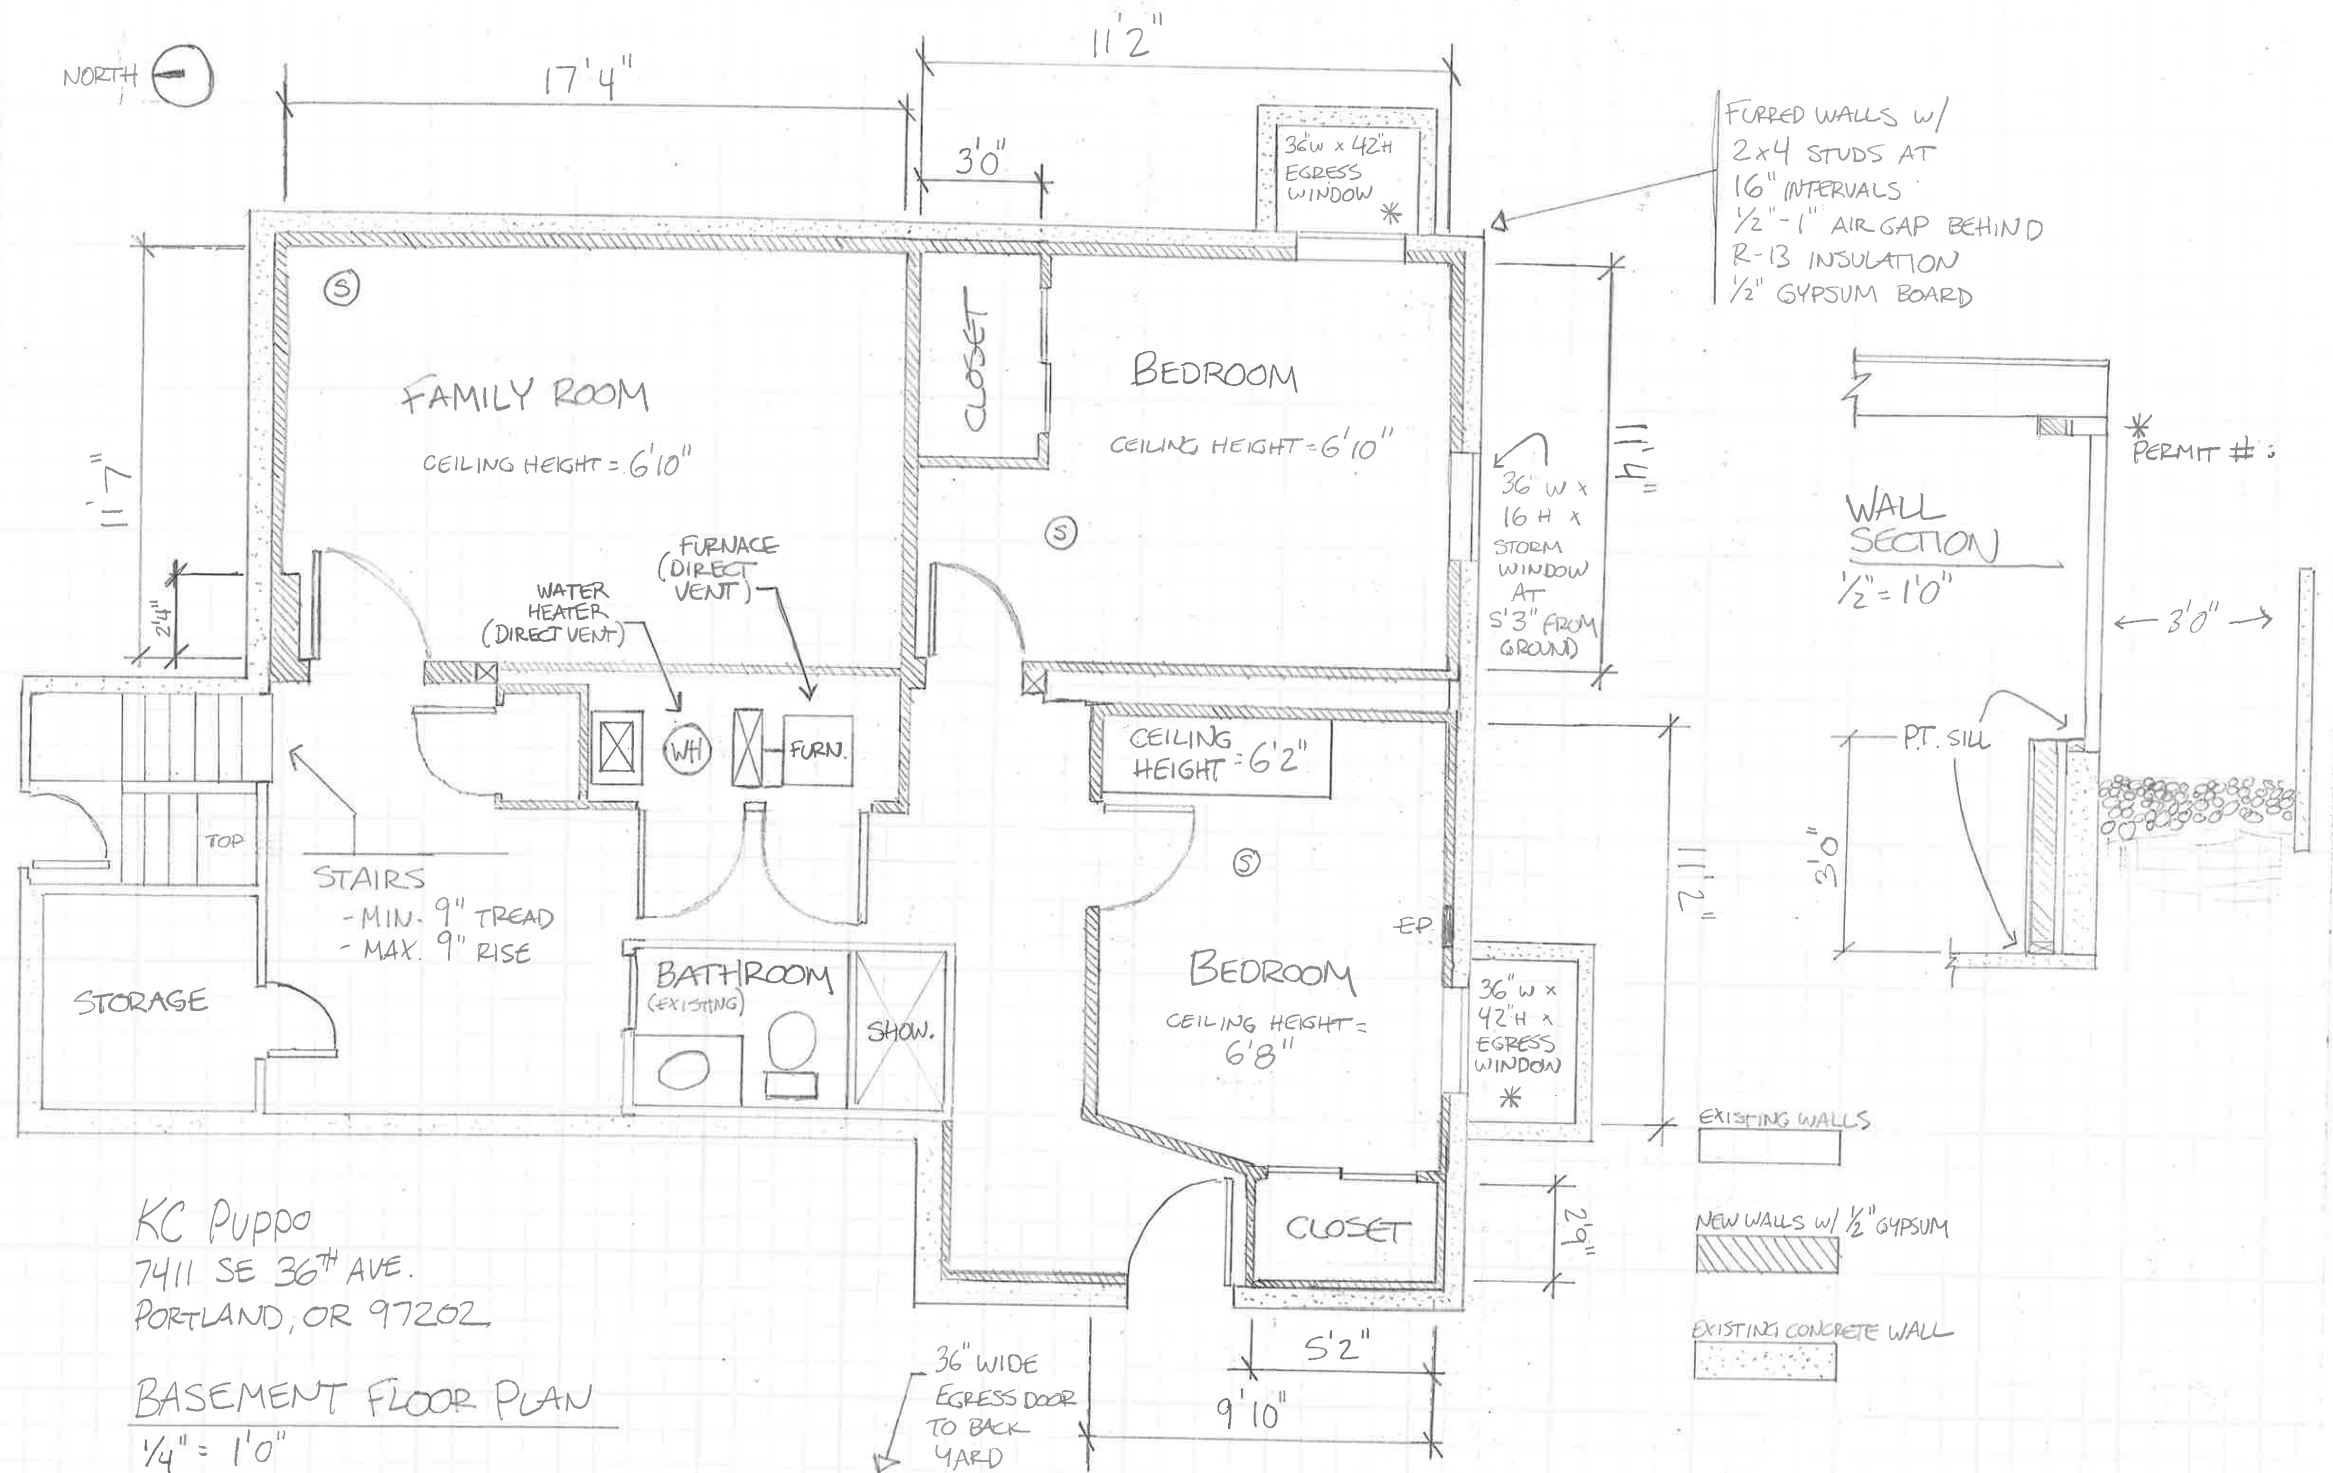 NORTH
17'4"
11'2"
3'0"
36"W x 42"H
EGRESS
WINDOW
*
FURRED WALLS W/
2x4 STUDS AT
16" INTERVALS
1/2"-1" AIR GAP BEHIND
R-13 INSULATION
1/2" GYPSUM BOARD
11'7"
2'4"
S
FAMILY ROOM
CEILING HEIGHT = 6'10"
CLOSET
BEDROOM
CEILING HEIGHT = 6'10"
S
11'4"
36" W x
16 H x
STORM
WINDOW
AT
5'3" FROM
GROUND
*
PERMIT # :
WALL
SECTION
1/2" = 1'0"
3'0"
P.T. SILL
3'0"
FURNACE
(DIRECT
VENT)
WATER
HEATER
(DIRECT VENT)
WH
FURN.
CEILING
HEIGHT = 6'2"
TOP
STAIRS
- MIN. 9" TREAD
- MAX. 9" RISE
S
EP
11'2"
STORAGE
BATHROOM
(EXISTING)
SHOW.
BEDROOM
CEILING HEIGHT =
6'8"
36" W x
42"H x
EGRESS
WINDOW
*
CLOSET
2'9"
EXISTING WALLS
NEW WALLS W/ 1/2" GYPSUM
EXISTING CONCRETE WALL
KC Puppo
7411 SE 36TH AVE.
PORTLAND, OR 97202
BASEMENT FLOOR PLAN
1/4" = 1'0"
36" WIDE
EGRESS DOOR
TO BACK
YARD
5'2"
9'10"